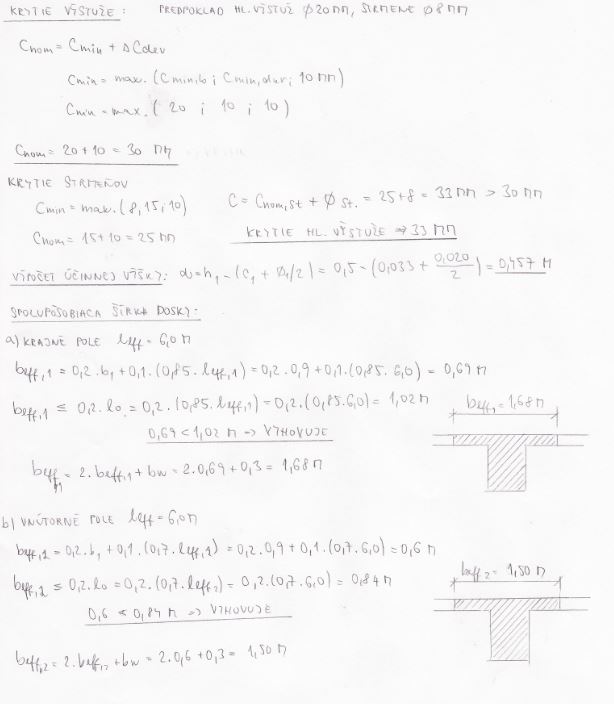 KRYTIE VÝSTUŽE: PREDPOKLAD HL. VÝSTUŽ Ø20MM, STRMENE Ø8MM
Cnom = Cmin + ΔCdev
Cmin = max. (Cmin,b; Cmin,dur; 10 MM)
Cmin = max. (20; 10; 10)
Cnom = 20+10 = 30 MM
KRYTIE STRMEŇOV
Cmin = max. (8, 15; 10)
C = Cnom,st + Øst. = 25+8 = 33 MM > 30 MM
Cnom = 15+10 = 25 MM
KRYTIE HL. VÝSTUŽE => 33 MM
VÝPOČET ÚČINNEJ VÝŠKY: d = h1 - (c1 + Ø1/2) = 0,5 - (0,033 + 0,020/2) = 0,457 M
SPOLUPÔSOBIACA ŠÍRKA DOSKY:
a) KRAJNÉ POLE leff = 6,0 M
beff,1 = 0,2 . b1 + 0,1 . (0,85 . leff,1) = 0,2 . 0,9 + 0,1 . (0,85 . 6,0) = 0,69 M
beff,1 ≤ 0,2 . l0 = 0,2 . (0,85 . leff,1) = 0,2 . (0,85 . 6,0) = 1,02 M
beff1 = 1,68 M
0,69 < 1,02 M => VYHOVUJE
beff,1 = 2 . beff,1 + bw = 2 . 0,69 + 0,3 = 1,68 M
b) VNÚTORNÉ POLE leff = 6,0 M
beff,2 = 0,2 . b1 + 0,1 . (0,7 . leff,2) = 0,2 . 0,9 + 0,1 . (0,7 . 6,0) = 0,6 M
beff,2 ≤ 0,2 . l0 = 0,2 . (0,7 . leff2) = 0,2 . (0,7 . 6,0) = 0,84 M
beff2 = 1,50 M
0,6 < 0,84 M => VYHOVUJE
beff,2 = 2 . beff,2 + bw = 2 . 0,6 + 0,3 = 1,50 M